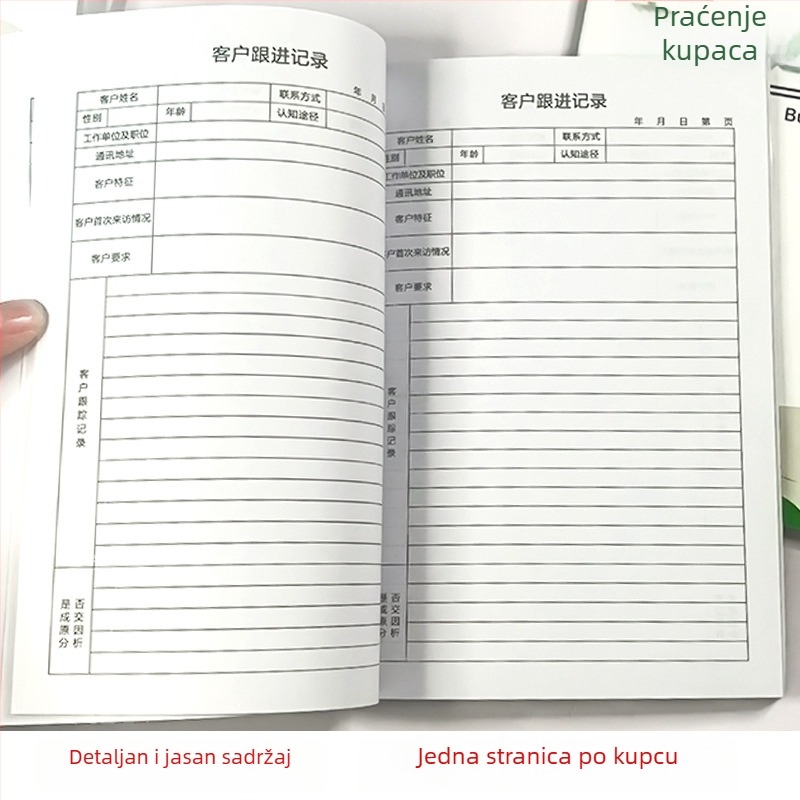 Praćenje
kupaca
客户跟进记录
年 月
客户姓名 联系方式
性别 年龄 认知途径
工作单位及职位
通讯地址
客户特征
客户首次来访情况
客户要求
客户跟踪记录
是否成交原因分析
客户跟进记录
年 月 日 第 页
客户姓名 联系方式
性别 年龄 认知途径
工作单位及职位
通讯地址
客户特征
客户首次来访情况
客户要求
客户跟踪记录
是否成交原因分析
Detaljan i jasan sadržaj
Jedna stranica po kupcu